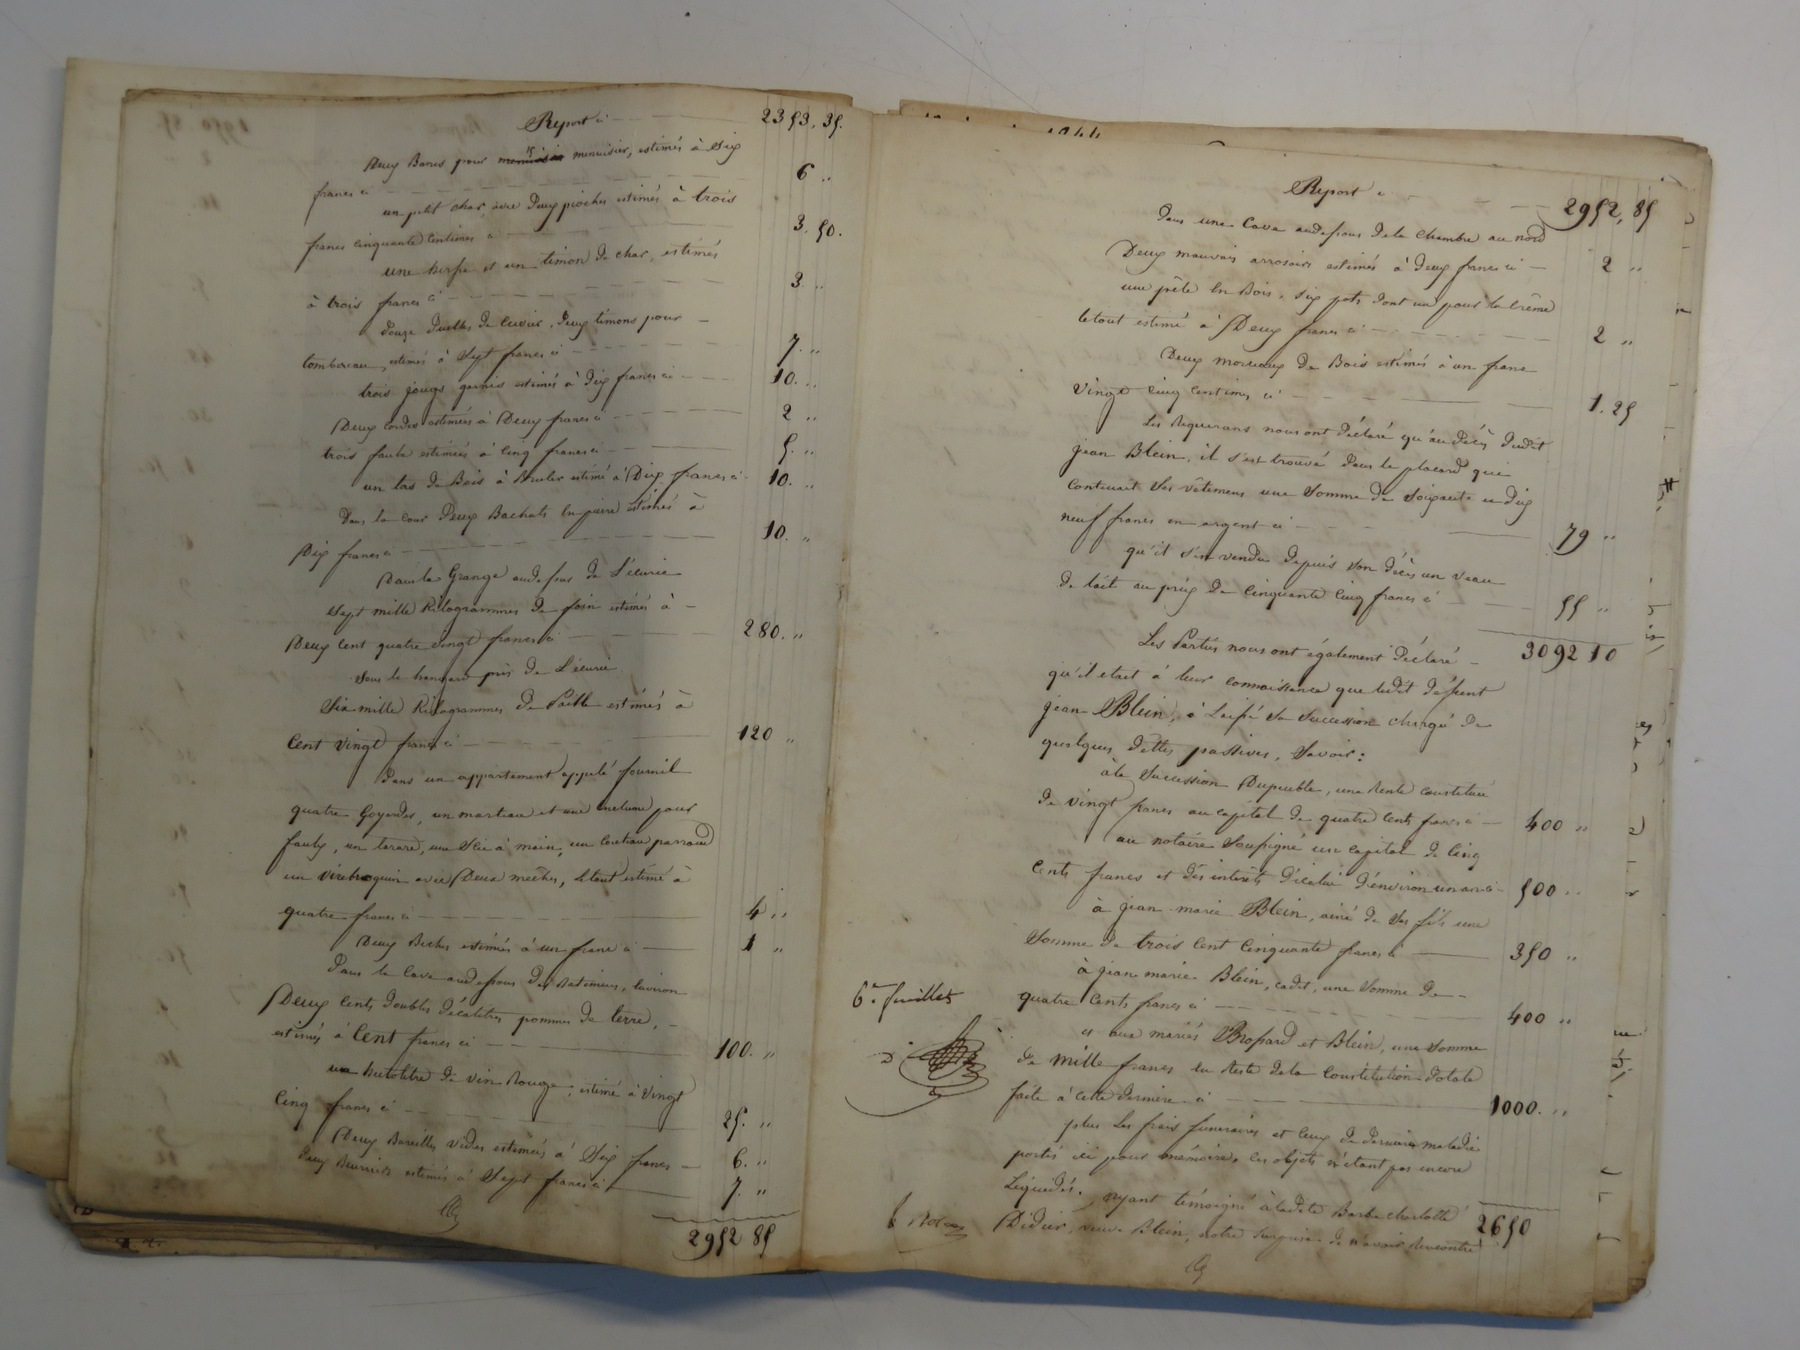 Report ci 2353, 35.
Deux Bancs pour menuisier, estimés à Six
francs ci 6 "
un petit char, avec deux pioches estimés à trois
francs cinquante centimes ci 3. 50.
une herse et un timon de char, estimés
à trois francs ci 3 "
douze de cuir, deux timons pour
tombereau, estimés à Sept francs ci 7. "
trois jougs garnis estimés à dix francs ci 10. "
Deux cordes estimées à Deux francs ci 2 "
trois faulx estimées à Cinq francs ci 5. "
un tas de Bois à bruler estimé à Dix francs ci 10. "
Dans la Cour Deux Bachats en pierre estimés à
Dix francs ci 10. "
Dans la Grange audessus de l'écurie
Sept mille Kilogrammes de foin estimés à
Deux Cent quatre vingt francs ci 280. "
Sous le hangard près de l'écurie
Six mille Kilogrammes de Paille estimés à
Cent vingt francs ci 120 "
dans un appartement appelé fournil
quatre Goyardes, un marteau et une enclume pour
faulx, un tarare, une Scie à main, un couteau
un virebroquin avec Deux mèches, le tout estimé à
quatre francs ci 4 "
Deux Bèches estimées à un franc ci 1 "
dans la Cave audessous des Batimens, environ
Deux Cents doubles décalitres pommes de terre,
estimés à Cent francs ci 100. "
un hectolitre de vin Rouge, estimé à vingt
Cinq francs ci 25. "
Deux Bareilles vides estimées à Six francs 6. "
deux estimés à Sept francs ci 7. "
2952 85
Report ci 2952, 85
dans une Cave audessous de la Chambre au nord
Deux mauvais arrosoirs estimés à deux francs ci 2 "
une en Bois, Six pots dont un pour la Crême
le tout estimé à Deux francs ci 2 "
Deux morceaux de Bois estimés à un franc
vingt cinq centimes ci 1. 25
Les Requérans nous ont déclaré qu'au décès dudit
jean Blein, il s'est trouvé dans le placard qui
Contenait Ses vêtemens une Somme de Soixante et dix
neuf francs en argent ci 79 "
qu'il s'est vendu depuis son décès un veau
de lait au prix de cinquante cinq francs ci 55 "
3092 10
Les Parties nous ont également déclaré
qu'il etait à leur connaissance que ledit défunt
jean Blein, a Laissé Sa Succession chargé de
quelques dettes passives, Savoir:
à la Succession Dupeuble, une rente constituée
de vingt francs au capital de quatre Cents francs ci 400 "
au notaire Soussigné un Capital de Cinq
Cents francs et des interêts d'environ un an ci 500 "
à jean marie Blein, ainé de Ses fils une
Somme de trois Cent Cinquante francs ci 350 "
à jean marie Blein, cadet, une Somme de
6e. feuillet quatre Cents francs ci 400 "
et aux mariés Brossard et Blein, une Somme
de mille francs en reste de la Constitution dotale
faite à cette dernière ci 1000. "
plus Les frais funeraires et Ceux de derniere maladie
portés ici pour mémoire, les objets n'étant pas encore
Liquidés. 2650
ayant témoigné à ladite Barbe charlotte
Didier, veuve Blein, notre Surprise de n'avoir Rencontré